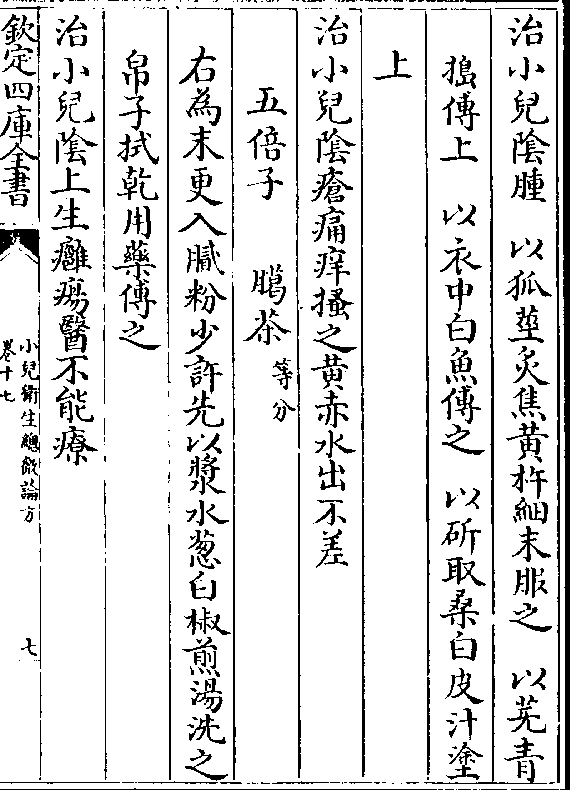 治小兒陰腫　以狐莖炙焦黃杵細末服之　以芫青
搗傅上　以衣中白魚傅之　以斫取桑白皮汁塗
上
治小兒陰瘡痛痒搔之黃赤水出不差
五倍子　臈茶等分
右為末更入膩粉少許先以漿水葱白椒煎湯洗之
帛子拭乾用藥傅之
治小兒陰上生癰瘍醫不能療
欽定四庫全書
小兒衛生總微論方
卷十七
七